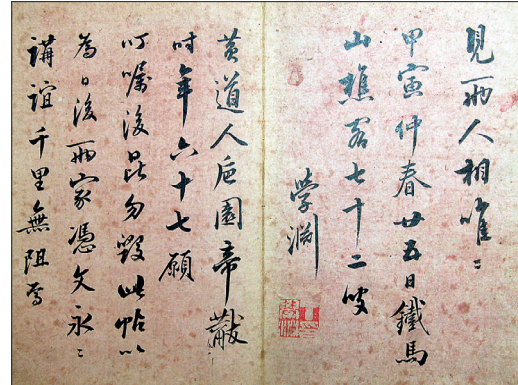 見兩人相唯〻
甲寅仲春廿五日鐵馬
山樵七十二叟
學淵
黃道人園帝黻
時年六十七願
叮嘱後昆勿毀此帖以
為日後兩家憑文永〻
講誼千里無阻焉